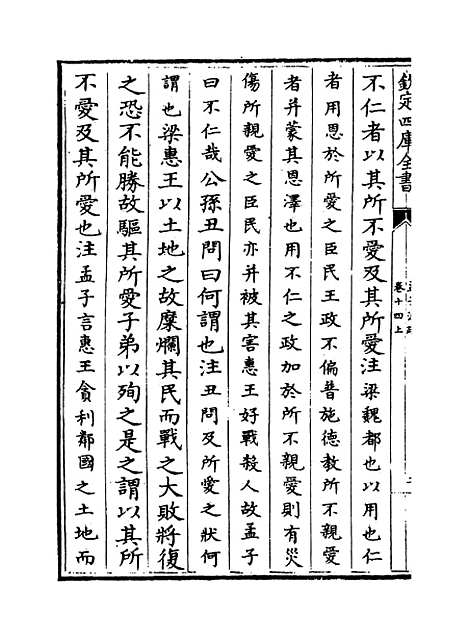 欽定四庫全書
卷十四上
不仁者以其所不愛及其所愛注梁魏都也以用也仁
者用恩於所愛之臣民王政不偏普施德教所不親愛
者并蒙其恩澤也用不仁之政加於所不親愛則有災
傷所親愛之臣民亦并被其害惠王好戰殺人故孟子
曰不仁哉公孫丑問曰何謂也注丑問及所愛之狀何
謂也梁惠王以土地之故糜爛其民而戰之大敗將復
之恐不能勝故驅其所愛子弟以殉之是之謂以其所
不愛及其所愛也注孟子言惠王貪利鄰國之土地而